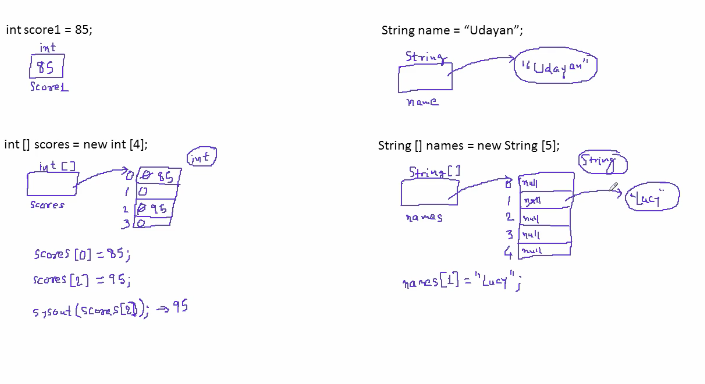 int score1 = 85;
int
85
score1
String name = “Udayan”;
String
"Udayan"
name
int [] scores = new int [4];
int []
int
0 0 85
1 0
2 0 95
3 0
scores
scores [0] = 85;
scores [2] = 95;
sysout (scores[2]); → 95
String [] names = new String [5];
String []
String
0 null
1 null
"Lucy"
2 null
3 null
4 null
names
names[1] = "Lucy";